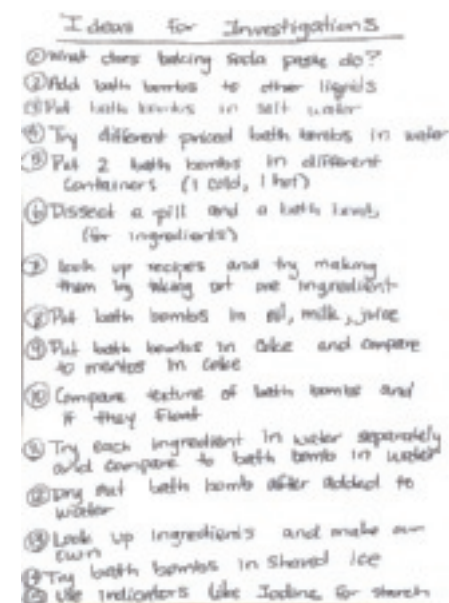 Ideas for Investigations
① What does baking soda paste do?
② Add bath bombs to other liquids
③ Put bath bombs in salt water
④ Try different priced bath bombs in water
⑤ Put 2 bath bombs in different
containers (1 cold, 1 hot)
⑥ Dissect a pill and a bath bomb,
(for ingredients)
⑦ look up recipes and try making
them by taking out one ingredient
⑧ Put bath bombs in oil, milk, juice
⑨ Put bath bombs in coke and compare
to mentos in coke
⑩ Compare texture of bath bombs and
if they float
⑪ Try each ingredient in water separately
and compare to bath bomb in water
⑫ Dry out bath bomb after added to
water
⑬ Look up ingredients and make our
own
⑭ Try bath bombs in shaved ice
⑮ Use indicators like Iodine for starch